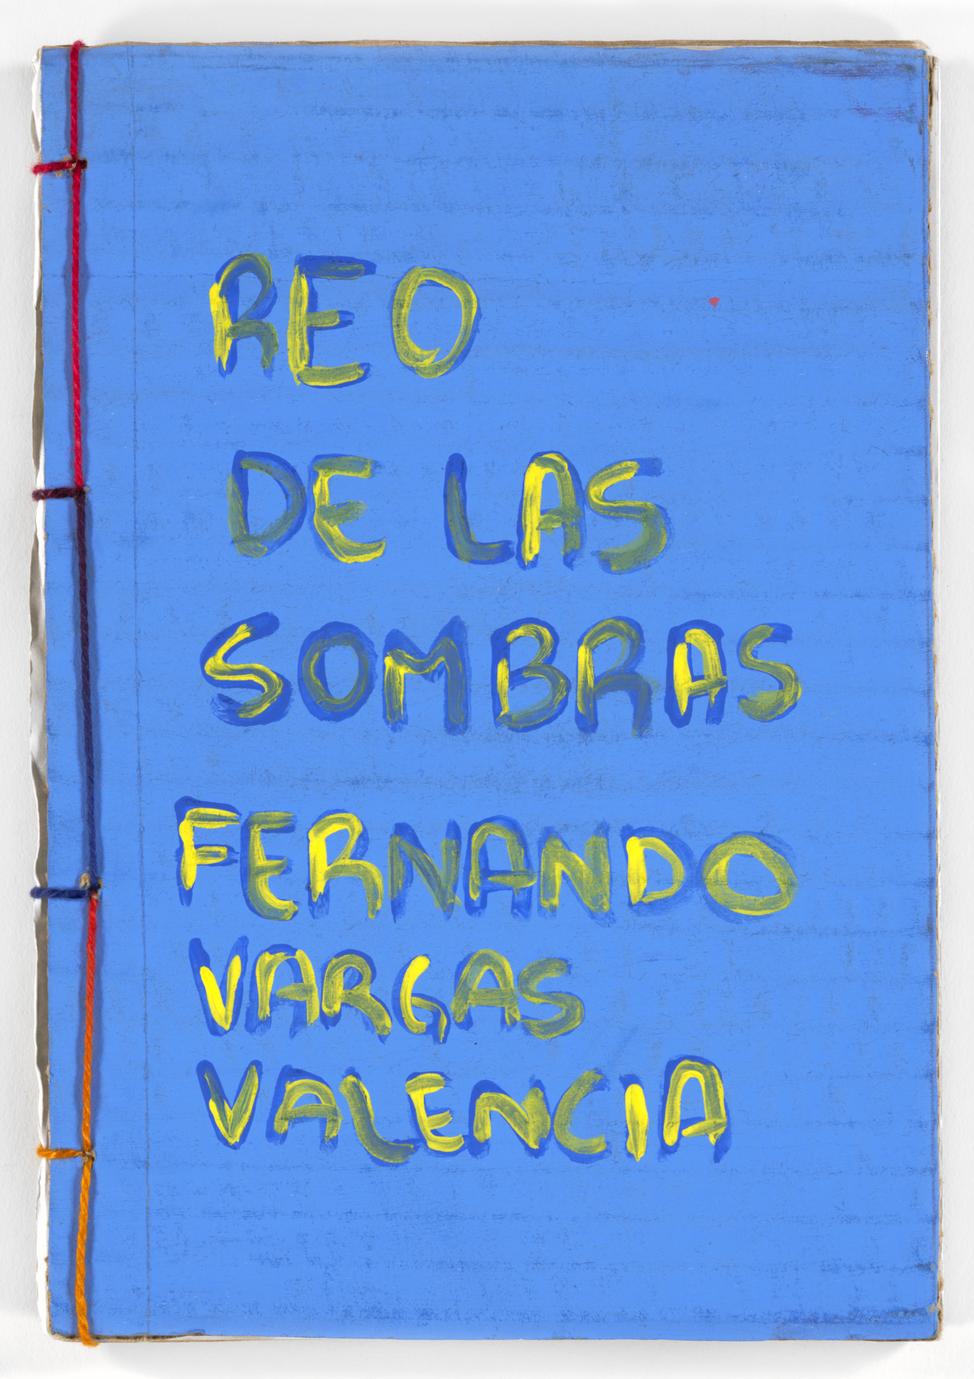 REO
DE LAS
SOMBRAS
FERNANDO
VARGAS
VALENCIA